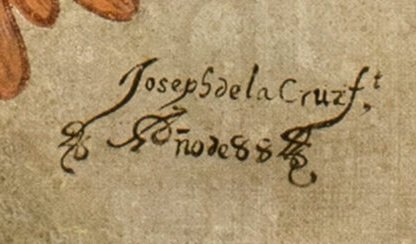 Joseph de la Cruz f.t
Año de 88